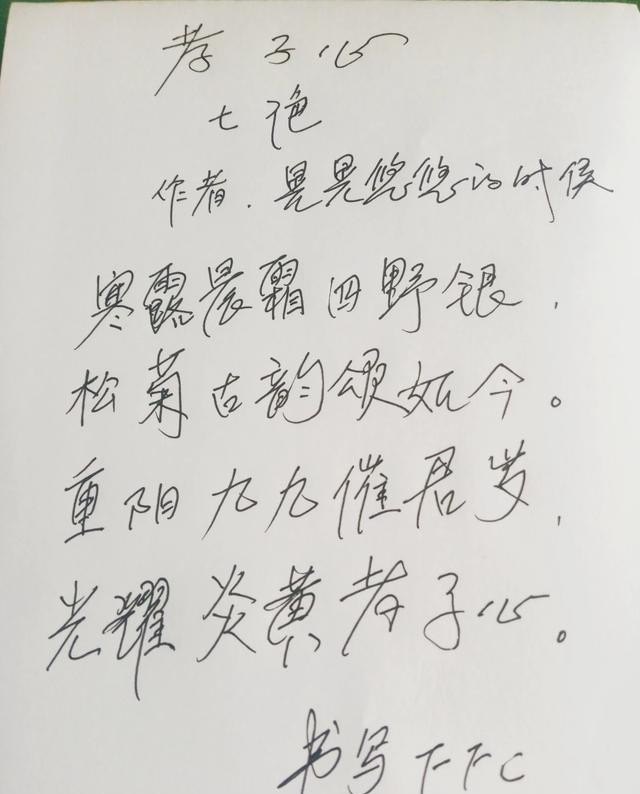 孝子心
七绝
作者.晃晃悠悠的时候
寒露晨霜四野银,
松菊古韵颂如今。
重阳九九催君岁,
光耀炎黄孝子心。
书写下下C